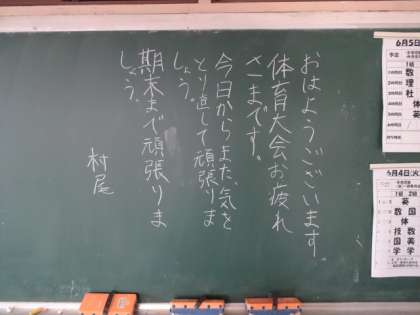 おはようございます。
体育大会お疲れ
さまです。
今日からまた気を
とり直して頑張りま
しょう。
期末まで頑張りま
しょう。
村尾
6月5日
1組
数
理
社
体
英
6月4日(火
1組 2組
英
数 国
体
技 数
国 美
学 学